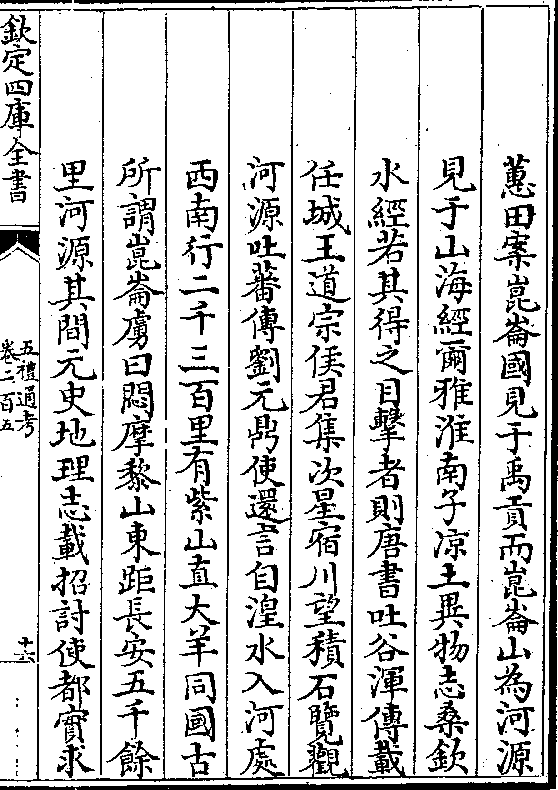 蕙田案崑崙國見于禹貢而崑崙山為河源
見于山海經爾雅淮南子凉土異物志桑欽
水經若其得之目擊者則唐書吐谷渾傳載
任城王道宗侯君集次星宿川望積石覽觀
河源吐蕃傳劉元鼎使還言自湟水入河處
西南行二千三百里有紫山直大羊同國古
所謂崑崙虜曰悶摩黎山東距長安五千餘
里河源其間元史地理志載招討使都實求
欽定四庫全書
五禮通考
卷二百五
十六